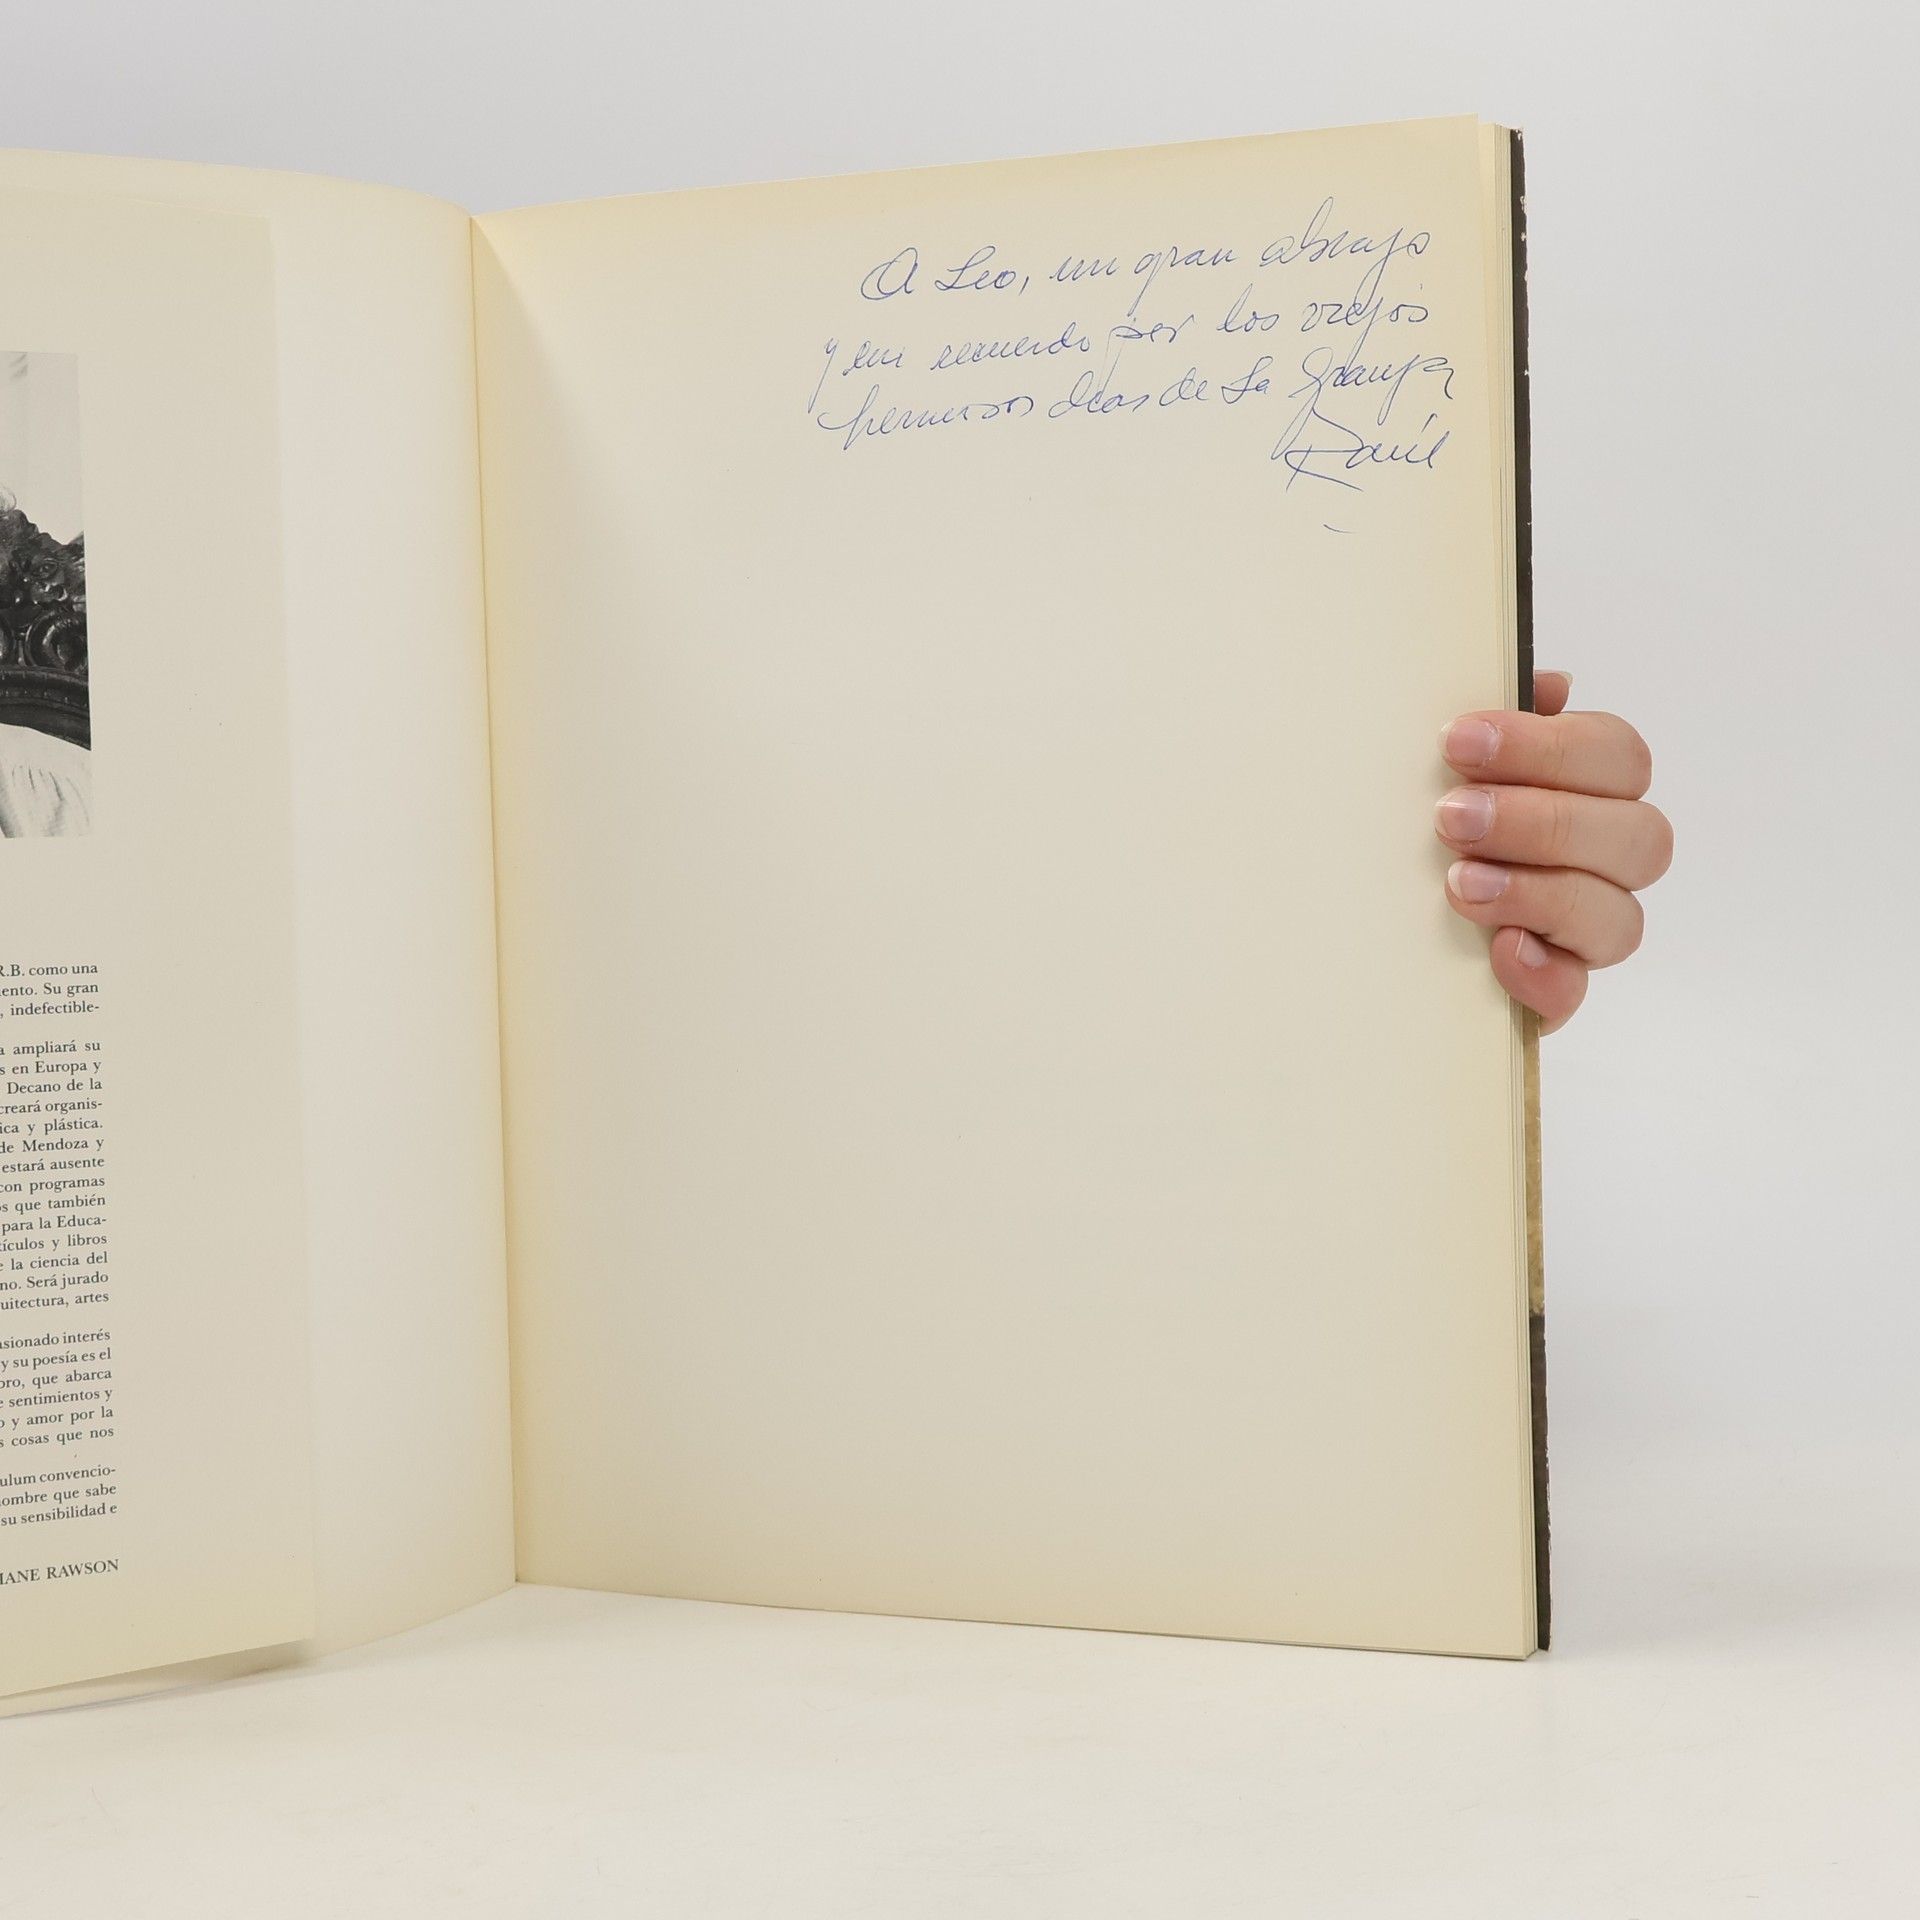 R.B. como una
ento. Su gran
, indefectible-
a ampliará su
s en Europa y
Decano de la
creará organis-
ica y plástica.
de Mendoza y
estará ausente
con programas
os que también
para la Educa-
tículos y libros
e la ciencia del
no. Será jurado
uitectura, artes
asionado interés
y su poesía es el
bro, que abarca
e sentimientos y
o y amor por la
s cosas que nos
ulum convencio-
hombre que sabe
su sensibilidad e
IANE RAWSON
A Leo, un gran abrazo
y un recuerdo por los viejos
hermosos días de La Granja
Raúl